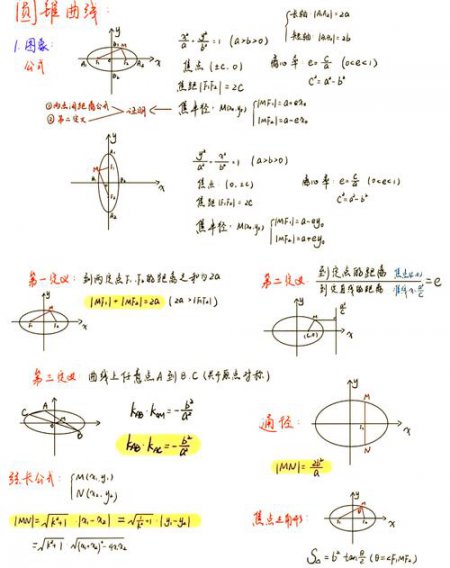 圆锥曲线:
1. 图象:
公式
x²/a² + y²/b² = 1 (a>b>0)
长轴 |A₁A₂| = 2a
短轴 |B₁B₂| = 2b
焦点 (±c, 0)
离心率 e = c/a (0<e<1)
焦距 |F₁F₂| = 2c
c² = a² - b²
①两点间距离公式
②第二定义
证明
焦半径: M(x₀, y₀)
|MF₁| = a+ex₀
|MF₂| = a-ex₀
y²/a² + x²/b² = 1 (a>b>0)
焦点: (0, ±c)
离心率: e = c/a (0<e<1)
焦距 |F₁F₂| = 2c
c² = a² - b²
焦半径: M(x₀, y₀)
|MF₁| = a-ey₀
|MF₂| = a+ey₀
第一定义: 到两定点F₁ F₂的距离之和为2a
|MF₁| + |MF₂| = 2a (2a > |F₁F₂|)
第二定义: 到定点的距离 焦点
到定直线的距离 准线 = e
第三定义 曲线上任意点A到B.C(关于原点对称)
k_AB · k_OM = -b²/a²
k_AB · k_AC = -b²/a²
通径:
|MN| = 2b²/a
弦长公式: M(x₁, y₁)
N(x₂, y₂)
|MN| = √(k²+1) |x₁-x₂| = √(1/k²+1) · |y₁-y₂|
= √(k²+1) · √((x₁+x₂)²-4x₁x₂)
焦点三角形:
S△ = b² tan θ/2 (θ=∠F₁MF₂)